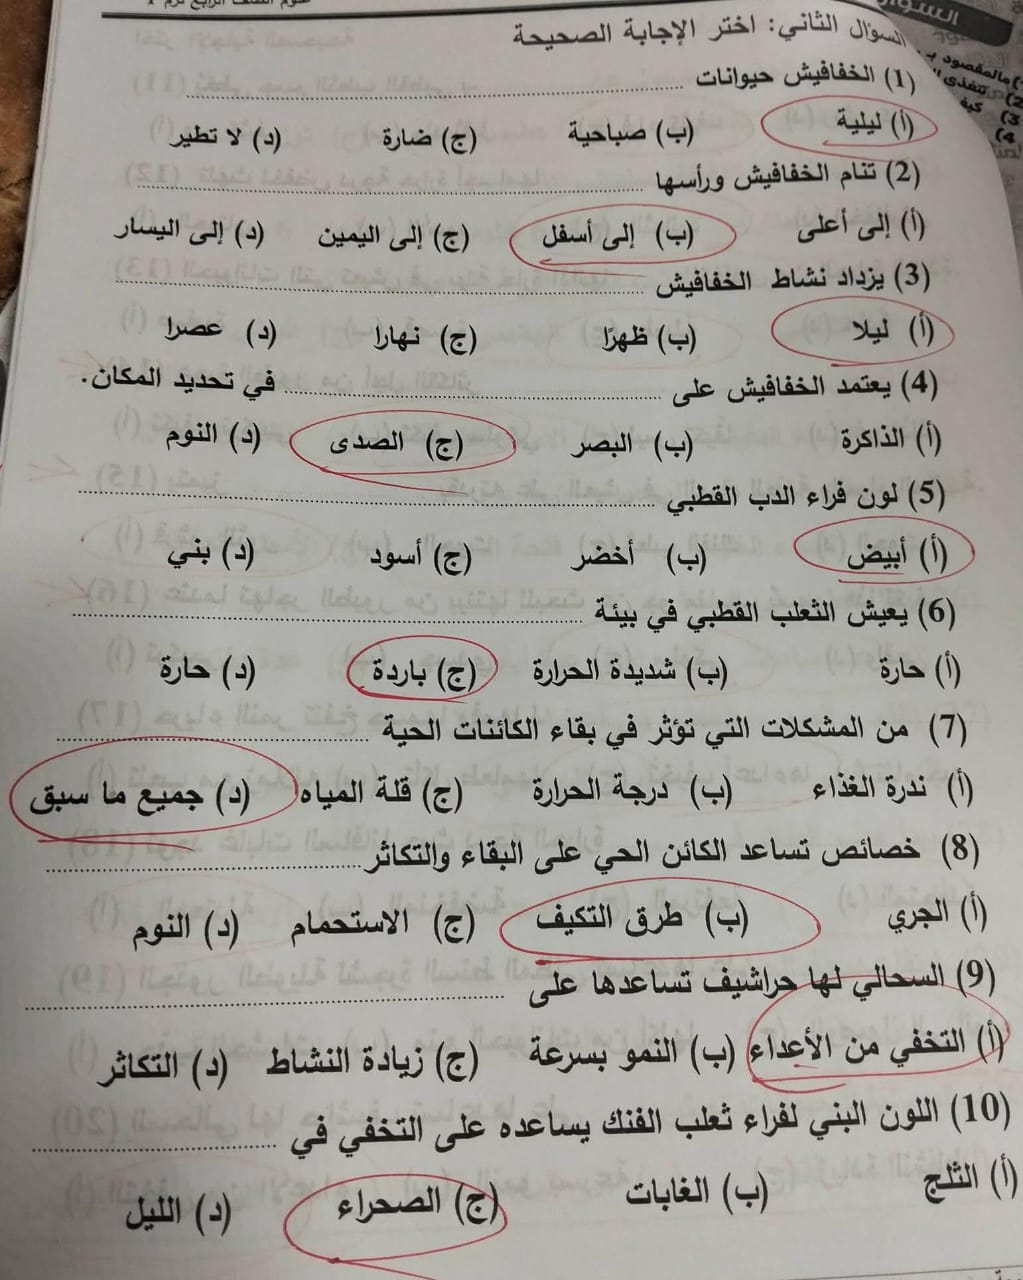 السؤال الثاني: اختر الإجابة الصحيحة
(1) الخفافيش حيوانات ........................
(أ) ليلية (ب) صباحية (ج) ضارة (د) لا تطير
(2) تنام الخفافيش ورأسها ........................
(أ) إلى أعلى (ب) إلى أسفل (ج) إلى اليمين (د) إلى اليسار
(3) يزداد نشاط الخفافيش ........................
(أ) ليلا (ب) ظهرًا (ج) نهارا (د) عصرا
(4) يعتمد الخفافيش على ........................ في تحديد المكان.
(أ) الذاكرة (ب) البصر (ج) الصدى (د) النوم
(5) لون فراء الدب القطبي ........................
(أ) أبيض (ب) أخضر (ج) أسود (د) بني
(6) يعيش الثعلب القطبي في بيئة ........................
(أ) حارة (ب) شديدة الحرارة (ج) باردة (د) حارة
(7) من المشكلات التي تؤثر في بقاء الكائنات الحية ........................
(أ) ندرة الغذاء (ب) درجة الحرارة (ج) قلة المياه (د) جميع ما سبق
(8) خصائص تساعد الكائن الحي على البقاء والتكاثر ........................
(أ) الجري (ب) طرق التكيف (ج) الاستحمام (د) النوم
(9) السحالي لها حراشيف تساعدها على ........................
(أ) التخفي من الأعداء (ب) النمو بسرعة (ج) زيادة النشاط (د) التكاثر
(10) اللون البني لفراء ثعلب الفنك يساعده على التخفي في ........................
(أ) الثلج (ب) الغابات (ج) الصحراء (د) الليل